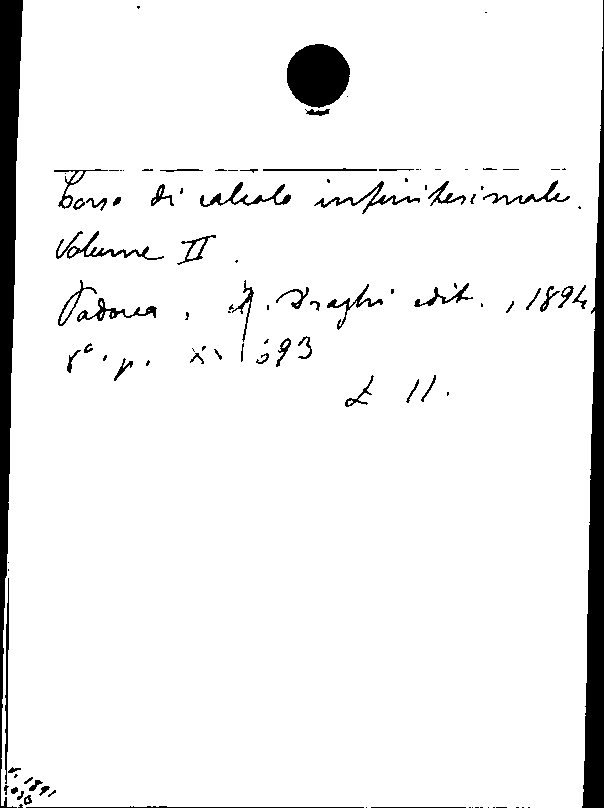 Corso di calcolo infinitesimale.
Volume II.
Padova, A. Draghi edit., 1894,
8°. p. XI 693
£ 11.
1891